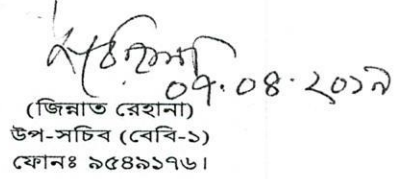 ০৭.০৪.২০১৯
(জিন্নাত রেহানা)
উপ-সচিব (বেবি-১)
ফোনঃ ৯৫৪৯১৭৬।